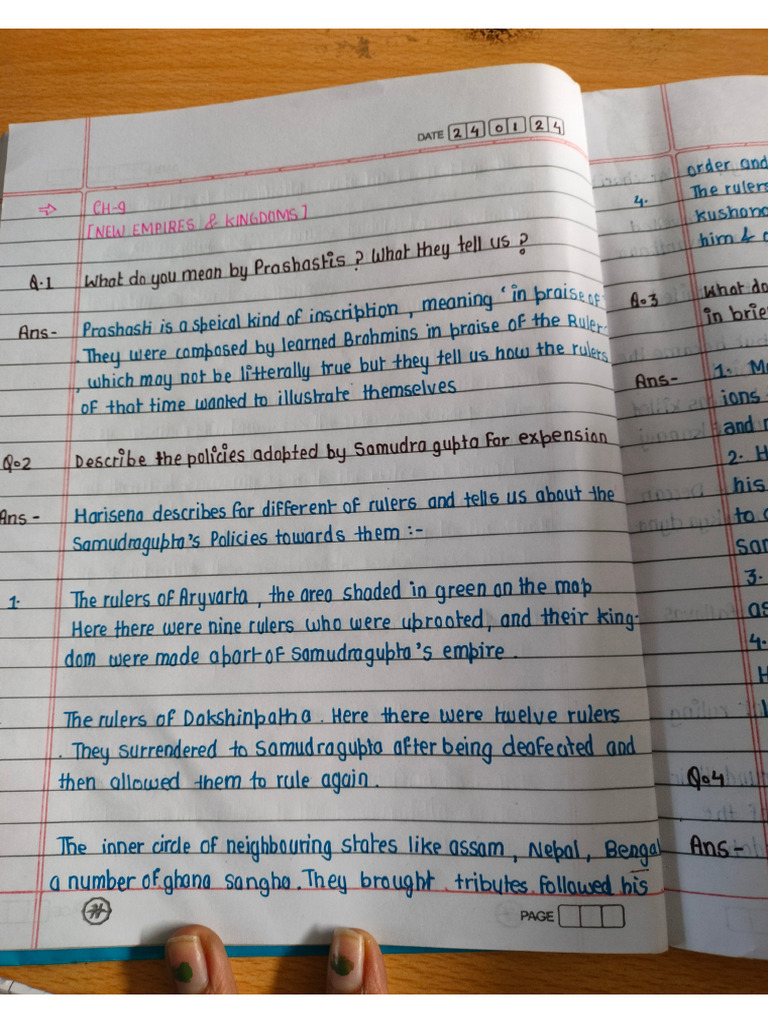 DATE 24 01 24
CH-9
[NEW EMPIRES & KINGDOMS]
Q.1 What do you mean by Prashastis ? What they tell us ?
Ans- Prashasti is a speical kind of inscription , meaning 'in praise of'
. They were composed by learned Brahmins in praise of the Ruler.
, which may not be litterally true but they tell us how the rulers
of that time wanted to illustrate themselves
Q.2 Describe the policies adopted by Samudra gupta for expension
Ans- Harisena describes for different of rulers and tells us about the
Samudragupta's Policies towards them :-
1. The rulers of Aryvarta , the area shaded in green on the map
Here there were nine rulers who were uprooted, and their king-
dom were made a part of samudragupta's empire .
The rulers of Dakshinpatha . Here there were twelve rulers
. They surrendered to samudragupta after being deafeated and
then allowed them to rule again .
The inner circle of neighbouring states like assam , Nepal , Bengal
a number of ghana sangha. They brought tributes. followed his
PAGE
order and
4. The rulers
kushana
him &
Q.3 What do
in brie
Ans- 1. M
ions
and
2. H
his
to
san
3.
as
4.
H
Q.4
Ans-